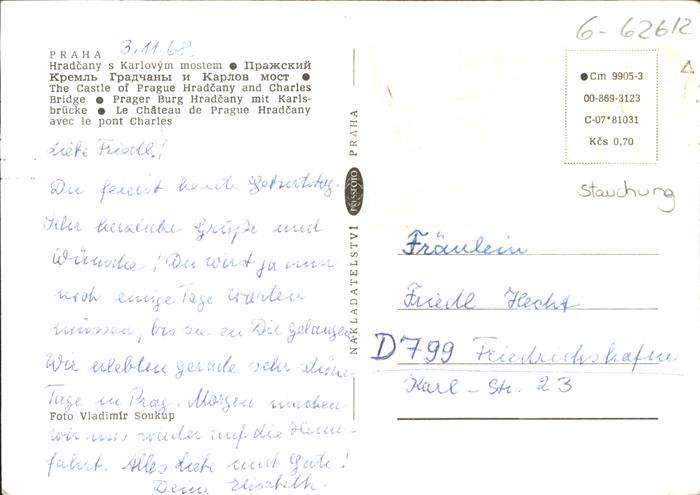 6-62612
PRAHA
3.11.68.
Hradčany s Karlovým mostem ● Пражский
Кремль Градчаны и Карлов мост ●
The Castle of Prague Hradčany and Charles
Bridge ● Prager Burg Hradčany mit Karls-
brücke ● Le Château de Prague Hradčany
avec le pont Charles
Liebe Friedl!
Du feierst heute Geburtstag.
Sehr herzliche Grüße und
Wünsche! Du wirst ja nun
noch einige Tage warten
müssen, bis sie zu Dir gelangen.
Wir erlebten gerade sehr schöne
Tage in Prag. Morgen machen
wir uns wieder auf die Heim-
fahrt. Alles Liebe und Gute!
Deine Elisabeth.
Foto Vladimír Soukup
NAKLADATELSTVÍ PRESSFOTO PRAHA
●Cm 9905-3
00-869-3123
C-07*81031
Kčs 0,70
Stauchung
Fräulein
Friedl Hecht
D799 Friedrichshafen
Karl-Str. 23